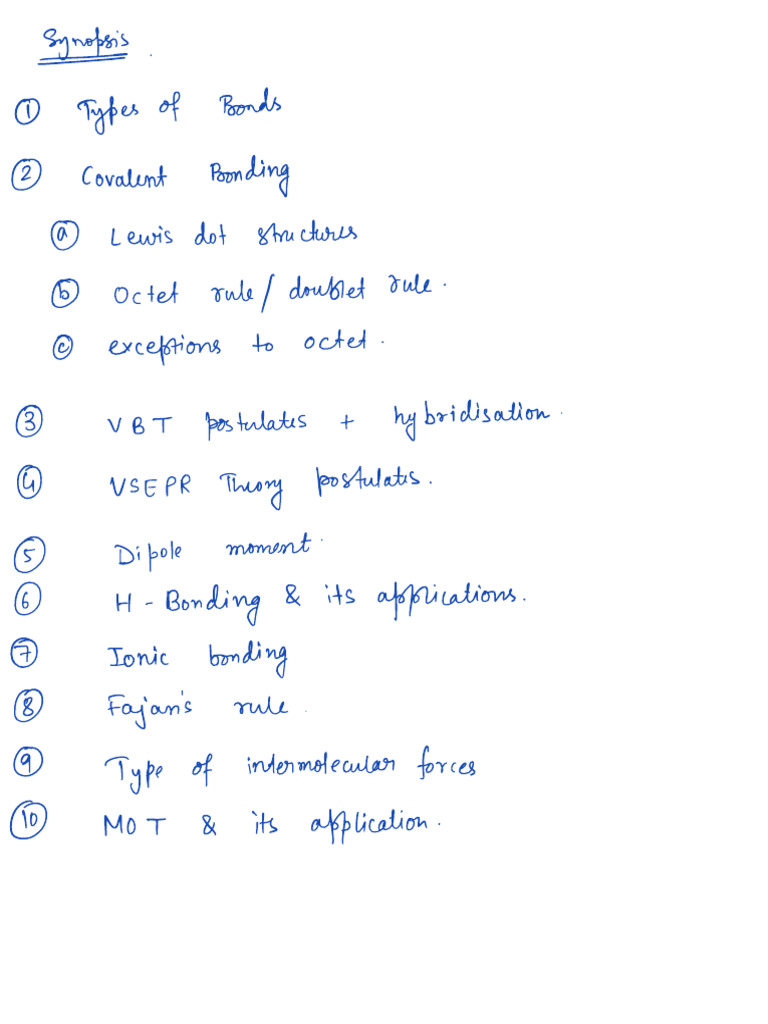 Synopsis.
① Types of Bonds
② Covalent Bonding
ⓐ Lewis dot structures
ⓑ Octet rule/doublet rule.
ⓒ exceptions to octet.
③ VBT postulates + hybridisation.
④ VSEPR Theory postulates.
⑤ Dipole moment.
⑥ H-Bonding & its applications.
⑦ Ionic bonding
⑧ Fajan's rule.
⑨ Type of intermolecular forces
⑩ MOT & its application.